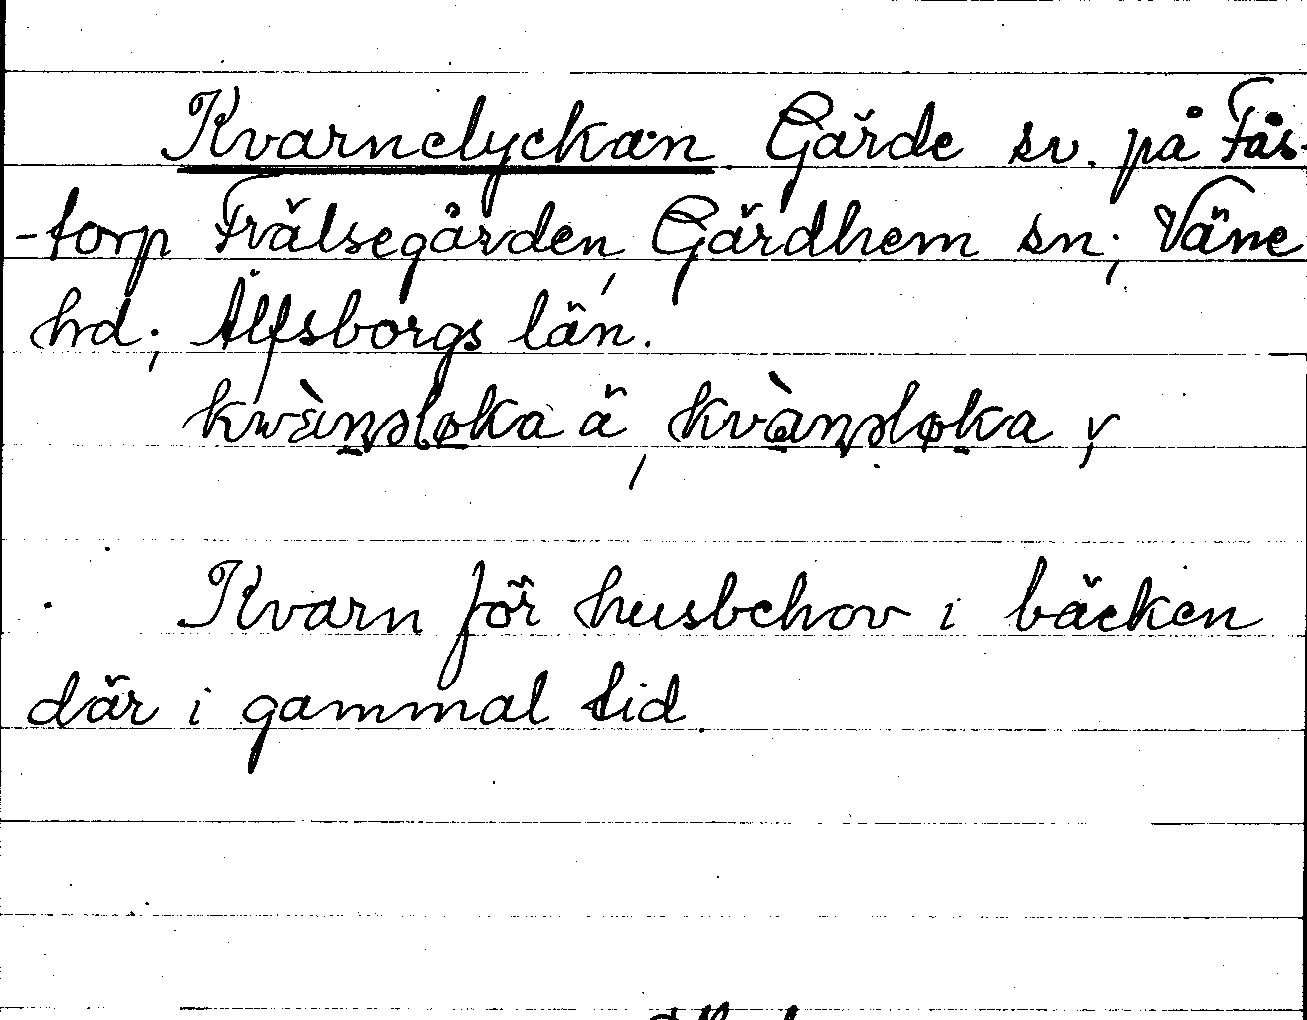 Kvarnelyckan Gärde sv. på Fås-
-torp Frälsegården, Gärdhem sn; Väne
hd; Älfsborgs län.
kwàn̥əløka ä, kvàn̥əløka y
Kvarn för husbehov i bäcken
där i gammal tid.